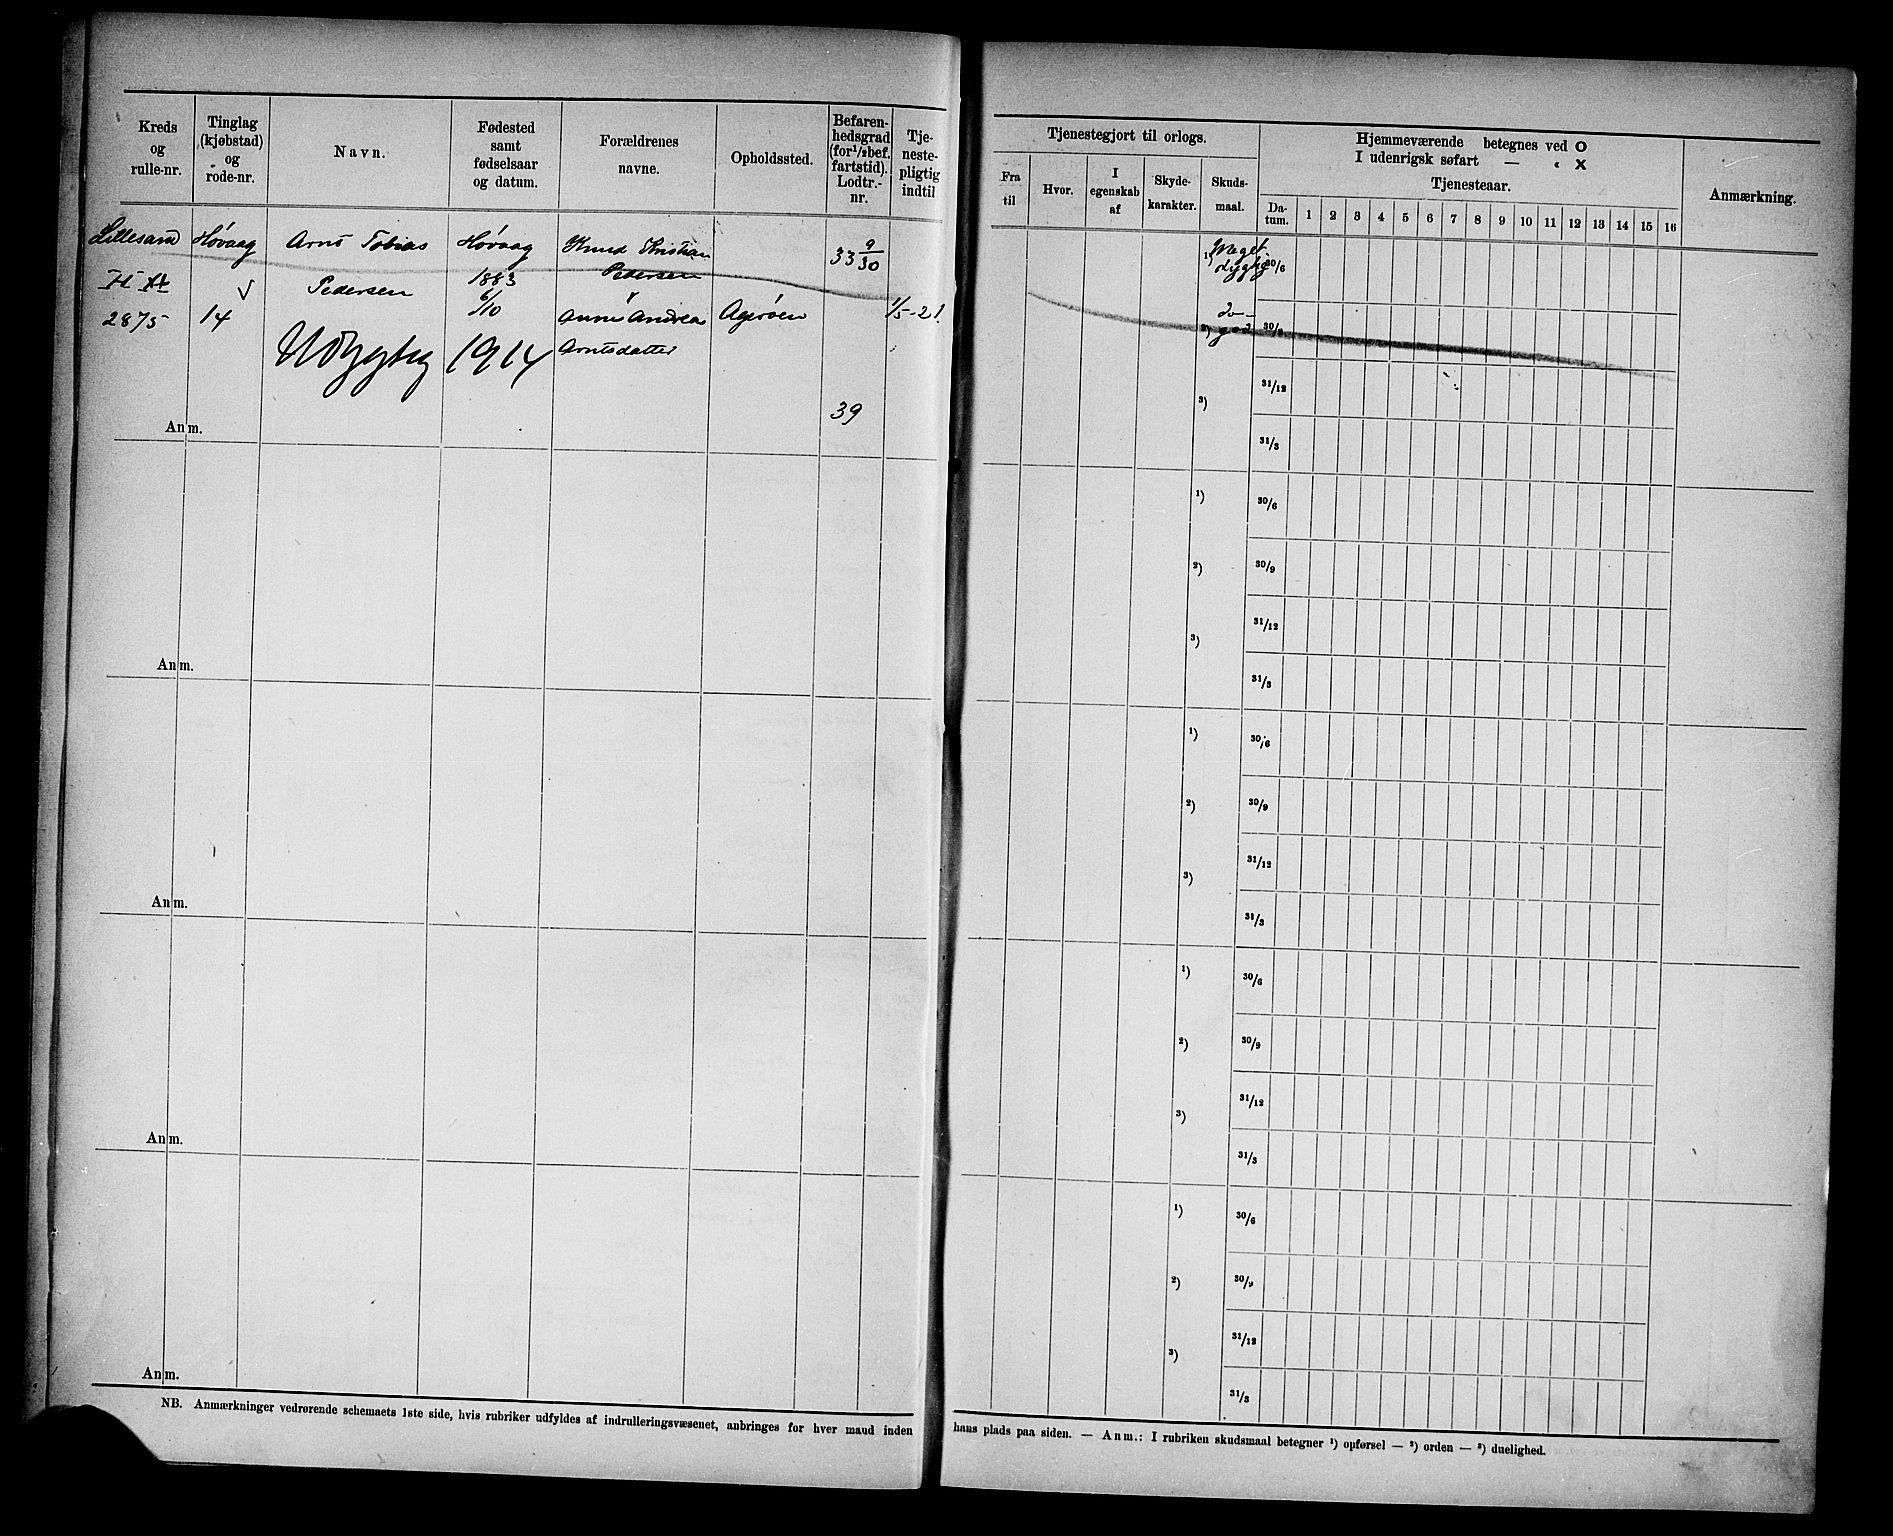 Kreds og rulle-nr.
Tinglag (kjøbstad) og rode-nr.
Navn.
Fødested samt fødselsaar og datum.
Forældrenes navne.
Opholdssted.
Befaren-hedsgrad (for 1/2 bef. fartstid). Lodtr.-nr.
Tje-neste-pligtig indtil
Tjenestegjort til orlogs.
Fra til
Hvor.
I egenskab af
Skyde-karakter.
Skuds-maal.
Hjemmeværende betegnes ved O
I udenrigsk søfart — " X
Tjenesteaar.
Da-tum. 1 2 3 4 5 6 7 8 9 10 11 12 13 14 15 16
Anmærkning.
Lillesand
2875
Høvaag
V
14
Arnt Tobias
Pedersen
1914
Høvaag
1883
6/10
Knud Kristian
Pedersen
Anne Andrea
Arntsdatter
Agerøen
33 9/30
39
1/5-21.
Anm.
1) Meget dygtig
2) do- god
3)
30/6
30/9
31/12
31/3
Anm.
1)
2)
3)
30/6
30/9
31/12
31/3
Anm.
1)
2)
3)
30/6
30/9
31/12
31/3
Anm.
1)
2)
3)
30/6
30/9
31/12
31/3
Anm.
1)
2)
3)
30/6
30/9
31/12
31/3
NB. Anmærkninger vedrørende schemaets 1ste side, hvis rubriker udfyldes af indrulleringsvæsenet, anbringes for hver mand inden hans plads paa siden. — Anm.: I rubriken skudsmaal betegner 1) opførsel — 2) orden — 3) duelighed.